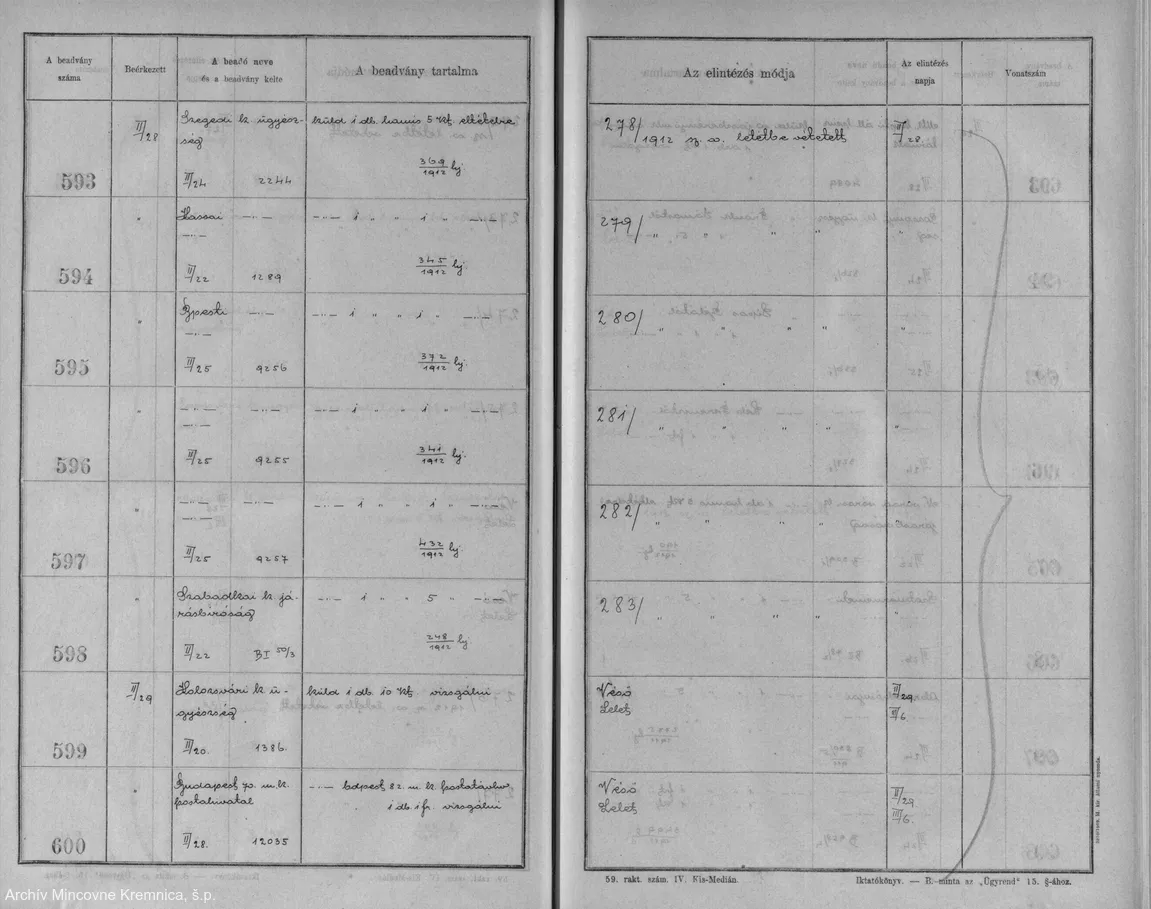 A beadvány száma
Beérkezett
A beadó neve és a beadvány kelte
A beadvány tartalma
Az elintézés módja
Az elintézés napja
Vonatszám
593
II/28
Szegedi k. ügyész-
ség
II/24 2244
küld 1 db. hamis 5 kf.
369/1912
278/1912 sz. a. letétbe vétetett
II/28
594
"
Kassai —"—
—"—
II/22 1289
—"— 1 " " 1 " —"—
345/1912
279/ " " " "
"
595
"
Bpesti —"—
—"—
II/25 9256
—"— 1 " " 1 " —"—
372/1912
280/ " " " "
"
596
"
—"— —"—
—"—
II/25 9255
—"— 1 " " 1 " —"—
341/1912
281/ " " "
"
597
"
—"— —"—
—"—
II/25 9257
—"— 1 " 1 " —"—
432/1912
282/ " " " "
"
598
"
Szabadkai k. já-
rásbíróság
II/22 BI 50/3
—"— 1 " " 5 " —"—
248/1912
283/ " " " "
"
599
II/29
Kolozsvári k. ü-
gyészség
II/20. 1386.
küld 1 db. 10 kf. vizsgálni
Véső
Lelet
II/29.
III/6.
600
Budapest 70. m. k.
postahivatal
II/28. 12035
—"— bdpest 82. m. k. postatávho
1 db. 1 fr. vizsgálni
Véső
Lelet
II/29
III/6.
59. rakt. szám. IV. Kis-Medián.
Iktatókönyv. — B.-minta az „Ügyrend" 15. §-ához.
Archív Mincovne Kremnica, š.p.